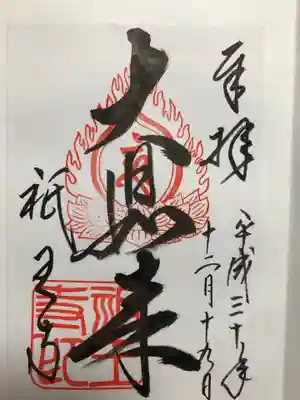 奉拝
平成三十年
十二月十九日
大日如来
祇王寺